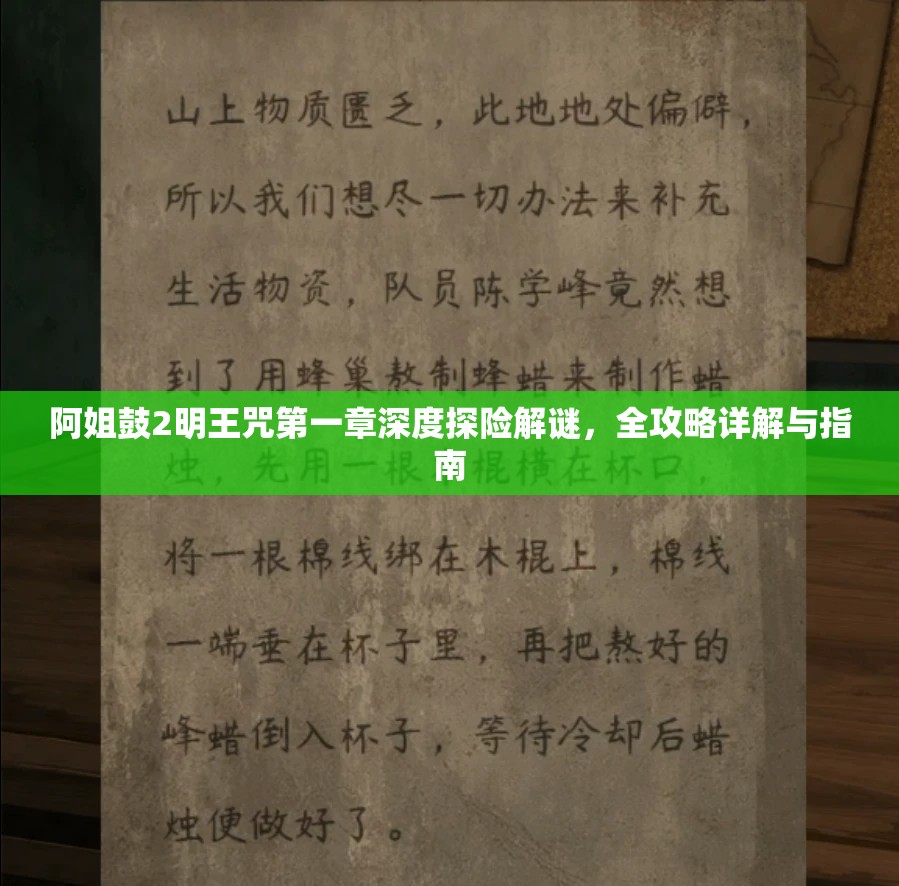 山上物质匮乏，此地地处偏僻，
所以我们想尽一切办法来补充
生活物资，队员陈学峰竟然想
到了用蜂巢熬制蜂蜡来制作蜡
阿姐鼓2明王咒第一章深度探险解谜，全攻略详解与指
南
烛，先用一根木棍横在杯口，
将一根棉线绑在木棍上，棉线
一端垂在杯子里，再把熬好的
峰蜡倒入杯子，等待冷却后蜡
烛便做好了。